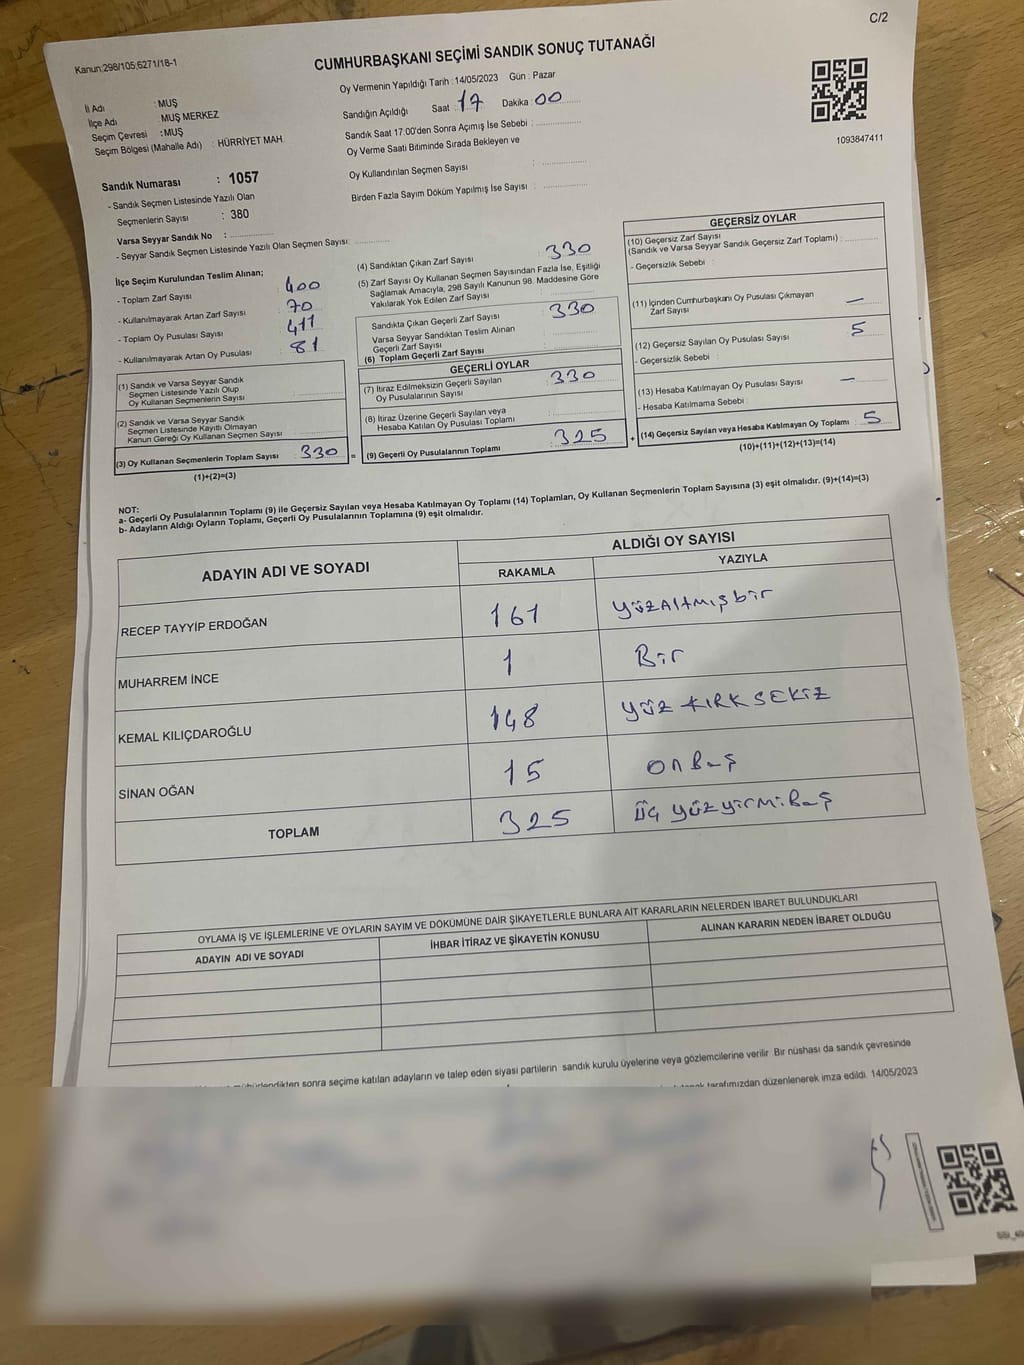 C/2
Kanun:298/105;6271/18-1
CUMHURBAŞKANI SEÇİMİ SANDIK SONUÇ TUTANAĞI
İl Adı : MUŞ
İlçe Adı : MUŞ MERKEZ
Seçim Çevresi : MUŞ
Seçim Bölgesi (Mahalle Adı) : HÜRRİYET MAH.
Sandık Numarası : 1057
- Sandık Seçmen Listesinde Yazılı Olan
Seçmenlerin Sayısı : 380
Varsa Seyyar Sandık No :
- Seyyar Sandık Seçmen Listesinde Yazılı Olan Seçmen Sayısı:
Oy Vermenin Yapıldığı Tarih : 14/05/2023 Gün : Pazar
Sandığın Açıldığı Saat : 17 Dakika : 00
Sandık Saat 17:00'den Sonra Açımış İse Sebebi :
Oy Verme Saati Bitiminde Sırada Bekleyen ve
Oy Kullandırılan Seçmen Sayısı :
Birden Fazla Sayım Döküm Yapılmış İse Sayısı :
1093847411
İlçe Seçim Kurulundan Teslim Alınan;
- Toplam Zarf Sayısı : 400
- Kullanılmayarak Artan Zarf Sayısı : 70
- Toplam Oy Pusulası Sayısı : 411
- Kullanılmayarak Artan Oy Pusulası : 81
(1) Sandık ve Varsa Seyyar Sandık
Seçmen Listesinde Yazılı Olup
Oy Kullanan Seçmenlerin Sayısı :
(2) Sandık ve Varsa Seyyar Sandık
Seçmen Listesinde Kayıtlı Olmayan
Kanun Gereği Oy Kullanan Seçmen Sayısı :
(3) Oy Kullanan Seçmenlerin Toplam Sayısı : 330
(1)+(2)=(3)
(4) Sandıktan Çıkan Zarf Sayısı : 330
(5) Zarf Sayısı Oy Kullanan Seçmen Sayısından Fazla İse, Eşitliği
Sağlamak Amacıyla, 298 Sayılı Kanunun 98. Maddesine Göre
Yakılarak Yok Edilen Zarf Sayısı :
Sandıkta Çıkan Geçerli Zarf Sayısı : 330
Varsa Seyyar Sandıktan Teslim Alınan
Geçerli Zarf Sayısı :
(6) Toplam Geçerli Zarf Sayısı :
GEÇERLİ OYLAR
(7) İtiraz Edilmeksizin Geçerli Sayılan
Oy Pusulalarının Sayısı : 330
(8) İtiraz Üzerine Geçerli Sayılan veya
Hesaba Katılan Oy Pusulası Toplamı :
= (9) Geçerli Oy Pusulalarının Toplamı : 325
GEÇERSİZ OYLAR
(10) Geçersiz Zarf Sayısı
(Sandık ve Varsa Seyyar Sandık Geçersiz Zarf Toplamı) :
- Geçersizlik Sebebi :
(11) İçinden Cumhurbaşkanı Oy Pusulası Çıkmayan
Zarf Sayısı : —
(12) Geçersiz Sayılan Oy Pusulası Sayısı : 5
- Geçersizlik Sebebi :
(13) Hesaba Katılmayan Oy Pusulası Sayısı : —
- Hesaba Katılmama Sebebi :
+ (14) Geçersiz Sayılan veya Hesaba Katılmayan Oy Toplamı : 5
(10)+(11)+(12)+(13)=(14)
NOT:
a- Geçerli Oy Pusulalarının Toplamı (9) ile Geçersiz Sayılan veya Hesaba Katılmayan Oy Toplamı (14) Toplamları, Oy Kullanan Seçmenlerin Toplam Sayısına (3) eşit olmalıdır. (9)+(14)=(3)
b- Adayların Aldığı Oyların Toplamı, Geçerli Oy Pusulalarının Toplamına (9) eşit olmalıdır.
ADAYIN ADI VE SOYADI
ALDIĞI OY SAYISI
RAKAMLA YAZIYLA
RECEP TAYYİP ERDOĞAN 161 yüzaltmışbir
MUHARREM İNCE 1 Bir
KEMAL KILIÇDAROĞLU 148 yüz kırk sekiz
SİNAN OĞAN 15 onbeş
TOPLAM 325 üç yüz yirmi beş
OYLAMA İŞ VE İŞLEMLERİNE VE OYLARIN SAYIM VE DÖKÜMÜNE DAİR ŞİKAYETLERLE BUNLARA AİT KARARLARIN NELERDEN İBARET BULUNDUKLARI
ADAYIN ADI VE SOYADI İHBAR İTİRAZ VE ŞİKAYETİN KONUSU ALINAN KARARIN NEDEN İBARET OLDUĞU
mühürlendikten sonra seçime katılan adayların ve talep eden siyasi partilerin sandık kurulu üyelerine veya gözlemcilerine verilir. Bir nüshası da sandık çevresinde
tarafımızdan düzenlenerek imza edildi. 14/05/2023